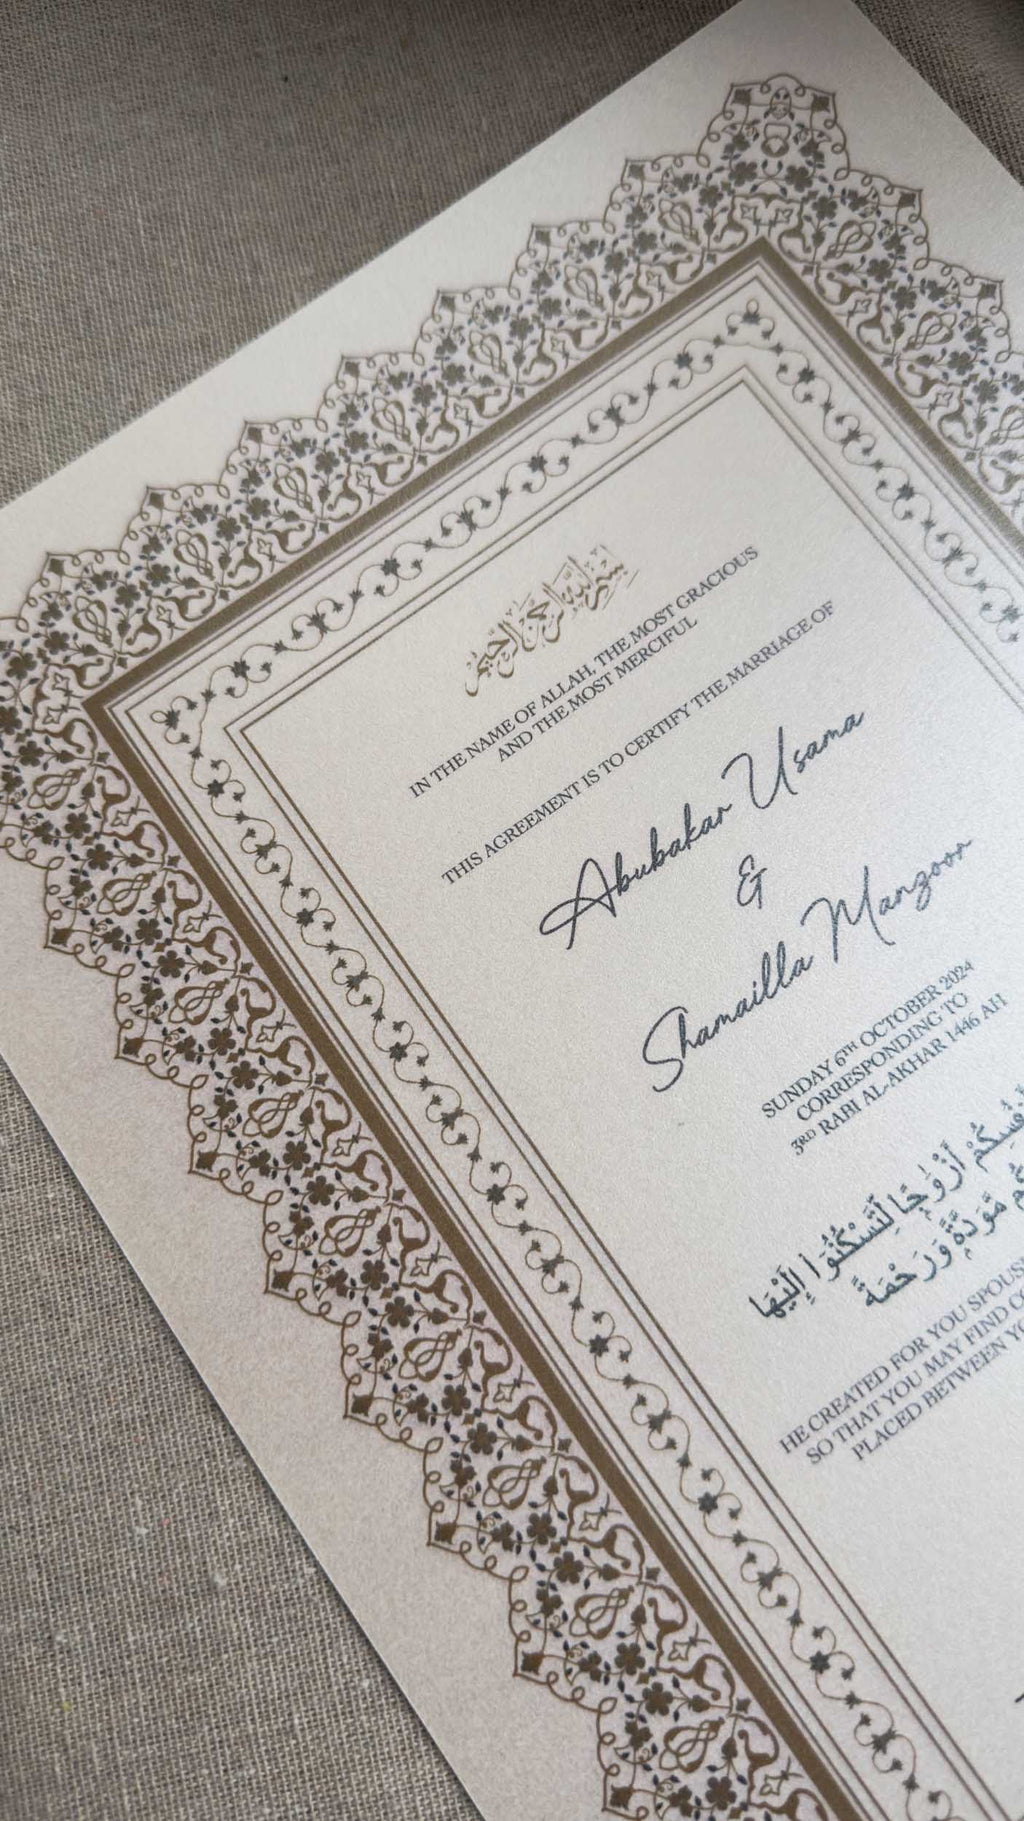 بسم الله الرحمن الرحيم
IN THE NAME OF ALLAH, THE MOST GRACIOUS
AND THE MOST MERCIFUL
THIS AGREEMENT IS TO CERTIFY THE MARRIAGE OF
Abubakar Usama
&
Shamailla Manzoor
SUNDAY 6TH OCTOBER 2024
CORRESPONDING TO
3RD RABI AL-AKHAR 1446 AH
أَزْوَٰجًا لِّتَسْكُنُوٓا۟ إِلَيْهَا
مَّوَدَّةً وَرَحْمَةً
HE CREATED FOR YOU
SO THAT YOU MAY FIND
PLACED BETWEEN